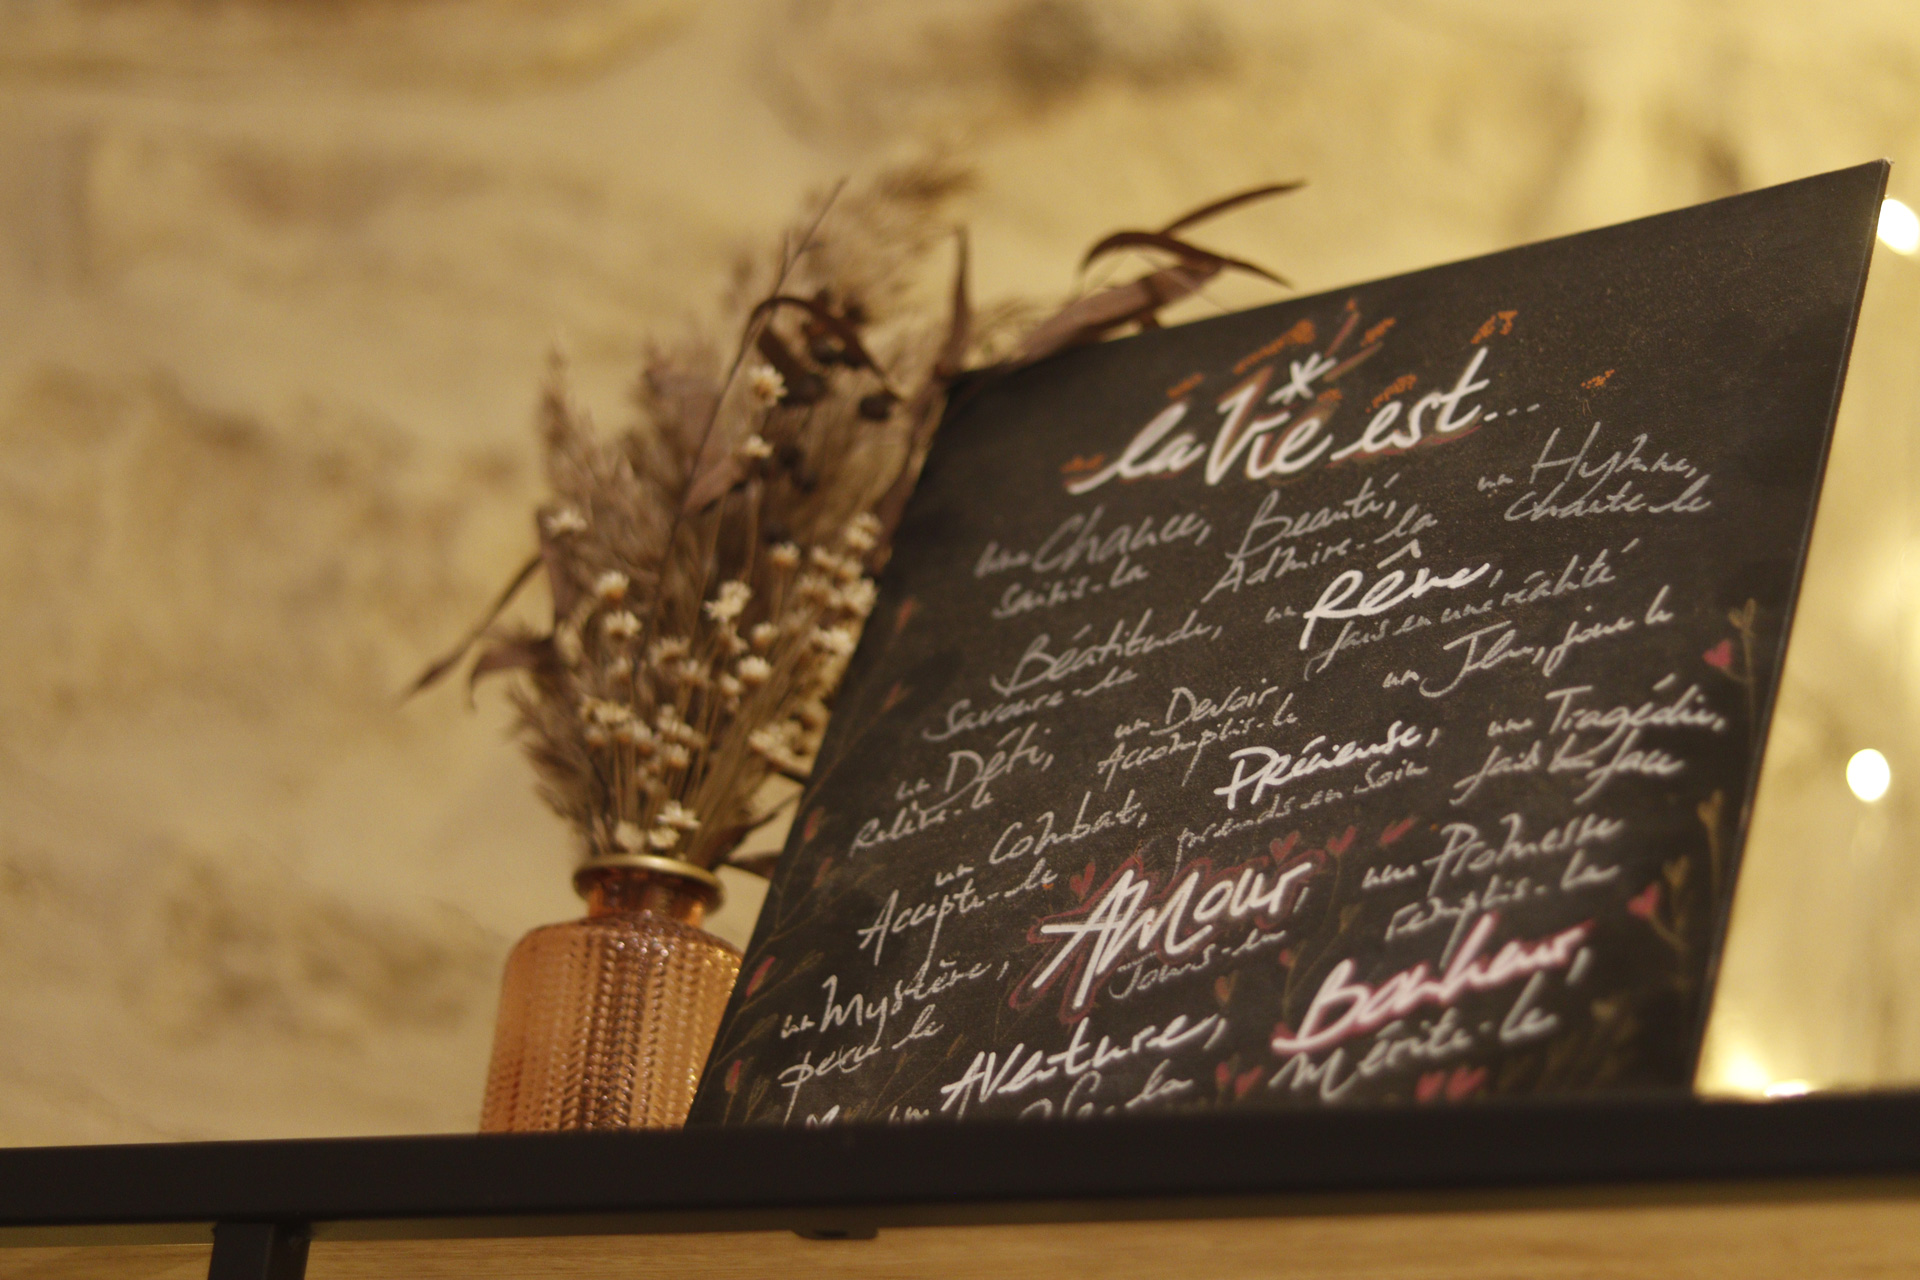 la Vie est...
une Chance, Beauté, un Hymne,
saisis-la Admire-la chante-le
Béatitude, un Rêve,
Savoure-la fais en une réalité
un Défi, un Devoir, un Jeu, joue le
Relève-le Accomplis-le
un Combat, Précieuse, une Tragédie,
Accepte-le prends en soin fais lui face
un Mystère, Amour, une Promesse
perce le Jouis-en remplis-la
Aventure, Bonheur,
-la Mérite-le